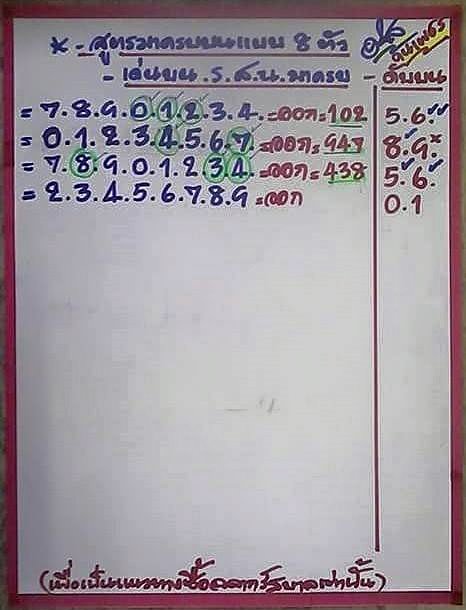 * - สูตรวกครบบนแบบ 8 ตัว
- เด่นบน . ร . ส . น . มาครบ - ดับบน
= 7.8.9.0.1.2.3.4. = ออก = 102 5.6.
= 0.1.2.3.4.5.6.7. = ออก = 947 8.9.×
= 7.8.9.0.1.2.3.4. = ออก = 438 5.6.
= 2.3.4.5.6.7.8.9 = ออก 0.1
(เพื่อเป็นแนวทางซื้อฉลากรัฐบาลเท่านั้น)